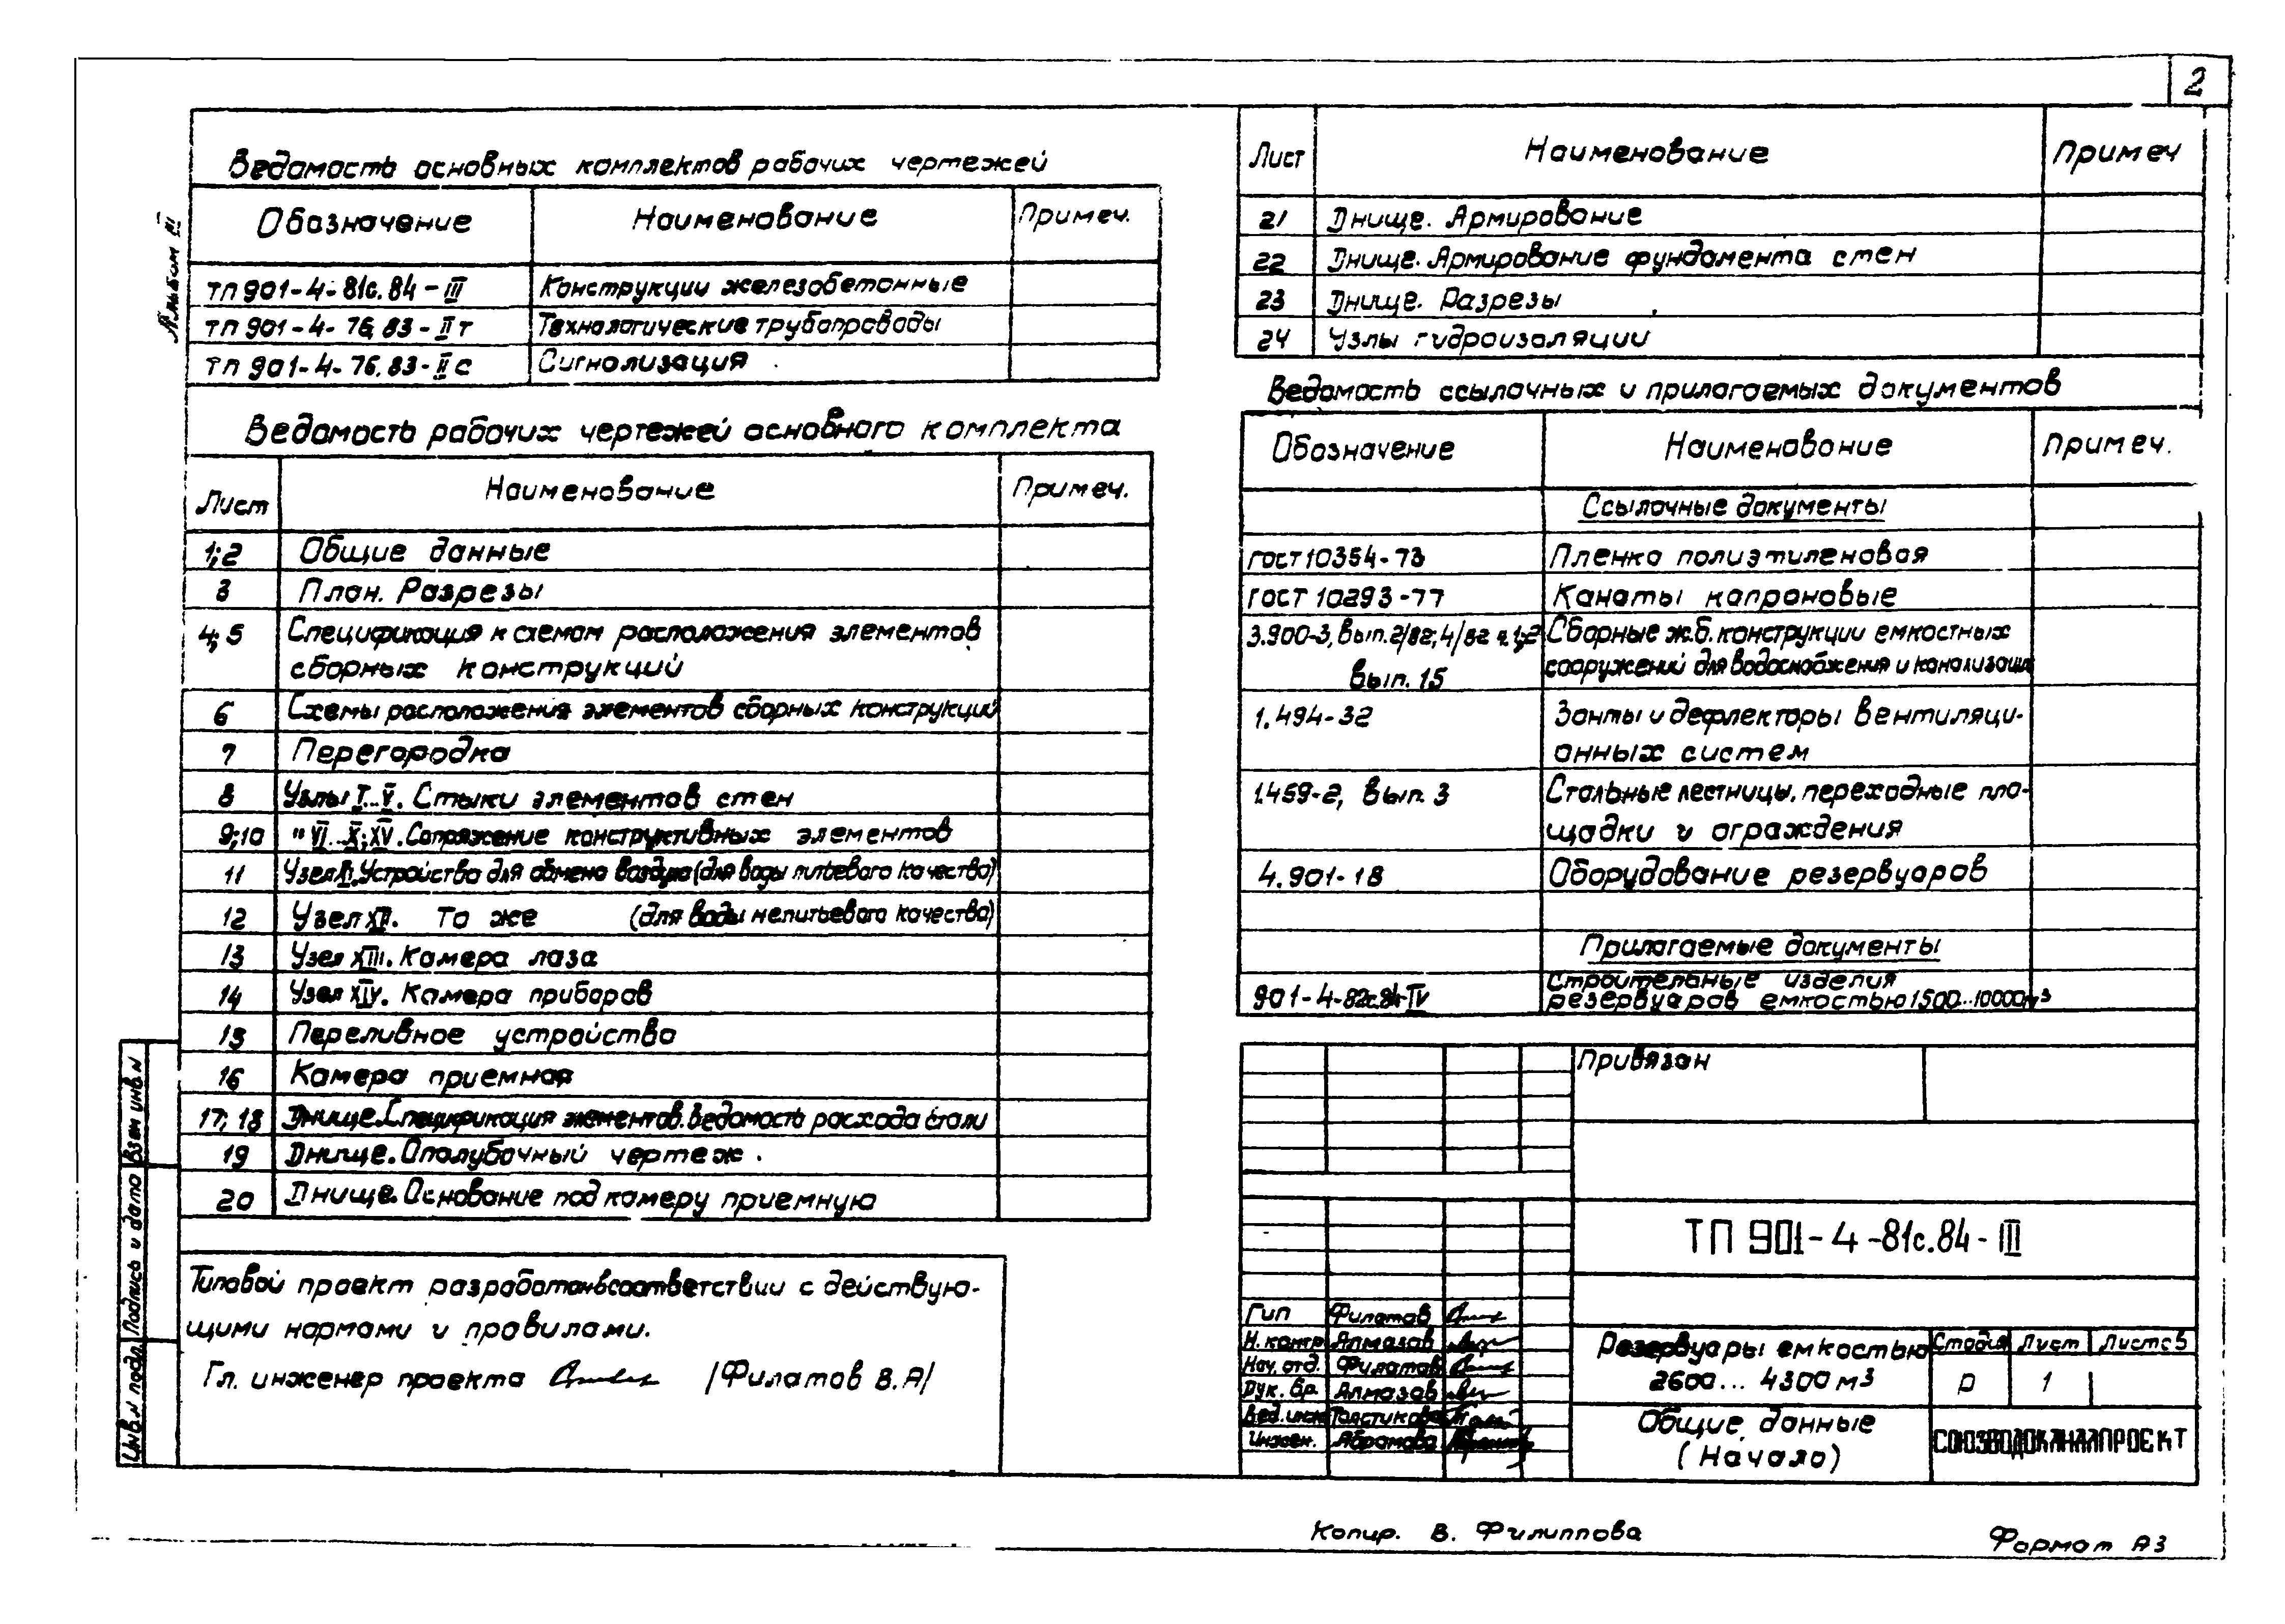 2
Альбом III
Ведомость основных комплектов рабочих чертежей
Обозначение Наименование Примеч.
ТП 901-4-81с.84-III Конструкции железобетонные
ТП 901-4-76.83-IIт Технологические трубопроводы
ТП 901-4-76.83-IIс Сигнализация
Ведомость рабочих чертежей основного комплекта
Лист Наименование Примеч.
1;2 Общие данные
3 План. Разрезы
4;5 Спецификация к схемам расположения элементов
сборных конструкций
6 Схемы расположения элементов сборных конструкций
7 Перегородка
8 Узлы I...V. Стыки элементов стен
9;10 " VI...X; XV. Сопряжение конструктивных элементов
11 Узел XI. Устройство для обмена воздуха (для воды питьевого качества)
12 Узел XII. То же (для воды непитьевого качества)
13 Узел XIII. Камера лаза
14 Узел XIV. Камера приборов
15 Переливное устройство
16 Камера приемная
17; 18 Днище. Спецификация элементов. Ведомость расхода стали
19 Днище. Опалубочный чертеж.
20 Днище. Основание под камеру приемную
Типовой проект разработан в соответствии с действую-
щими нормами и правилами.
Гл. инженер проекта /Филатов В.А/
Инв.N подл. Подпись и дата Взам инв.N
Лист Наименование Примеч
21 Днище. Армирование
22 Днище. Армирование фундамента стен
23 Днище. Разрезы
24 Узлы гидроизоляции
Ведомость ссылочных и прилагаемых документов
Обозначение Наименование Примеч.
Ссылочные документы
ГОСТ 10354-73 Пленка полиэтиленовая
ГОСТ 10293-77 Канаты капроновые
3.900-3, вып. 2/82; 4/82 ч. 1;2 Сборные ж.б. конструкции емкостных
вып. 15 сооружений для водоснабжения и канализации
1.494-32 Зонты и дефлекторы вентиляци-
онных систем
1.459-2, вып. 3 Стальные лестницы, переходные пло-
щадки и ограждения
4.901-18 Оборудование резервуаров
Прилагаемые документы
901-4-82с.84-IV Строительные изделия
резервуаров емкостью 1500...10000м3
Привязан
ТП 901-4-81с.84-III
Гип Филатов
Н. контр Алмазов
Нач. отд. Филатов
Рук. бр. Алмазов
Вед. инж Толстикова
Инжен. Абрамова
Резервуары емкостью
2600... 4300 м3
Стадия Лист Листов
Р 1
Общие данные
(Начало)
СОЮЗВОДОКАНАЛПРОЕКТ
Копир. В. Филиппова Формат А3